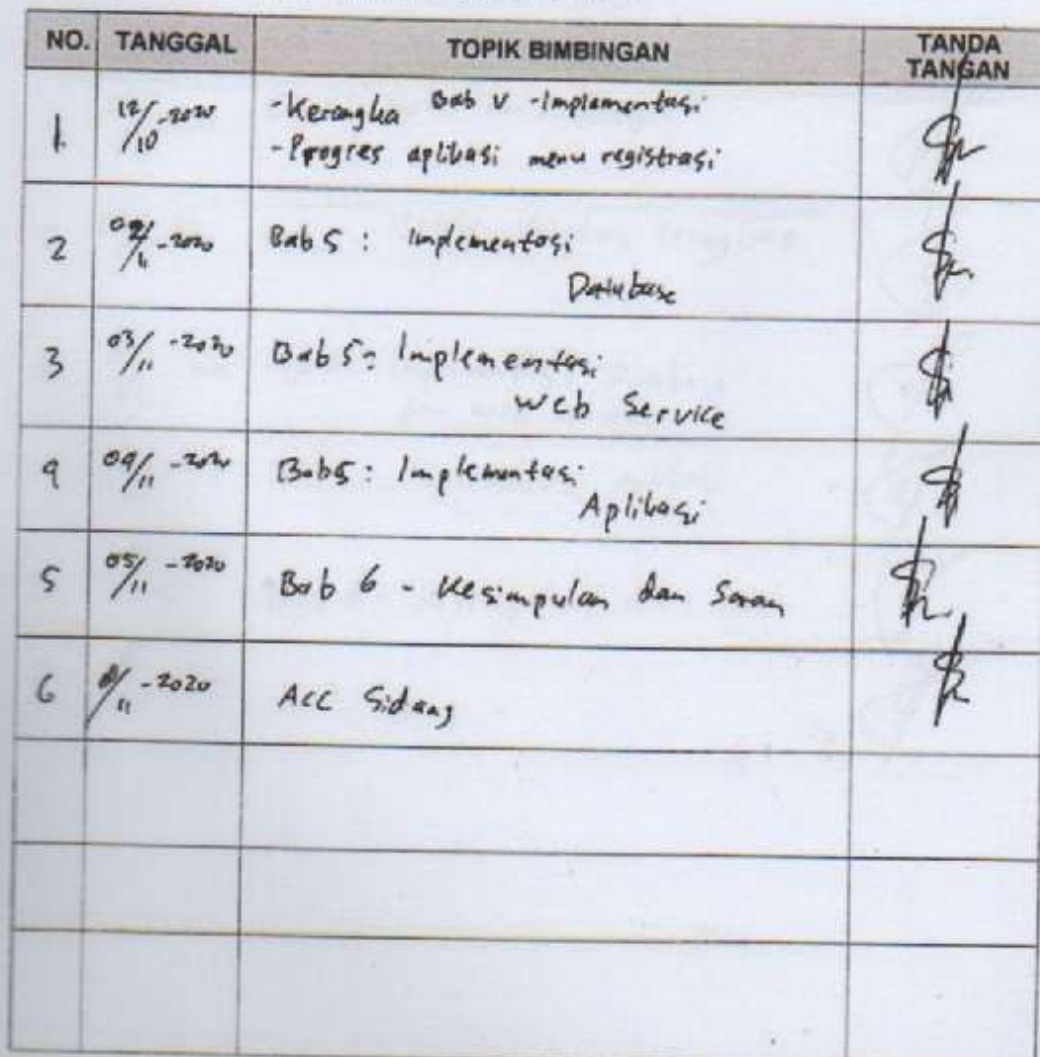 NO. TANGGAL TOPIK BIMBINGAN TANDA TANGAN
1. 12/10-2020 -Kerangka Bab V -Implementasi
-Progres aplikasi menu registrasi
2 02/11-2020 Bab 5 : Implementasi
Database
3 03/11-2020 Bab 5: Implementasi
Web Service
4 04/11-2020 Bab 5 : Implementasi
Aplikasi
5 05/11-2020 Bab 6 - Kesimpulan dan Saran
6 /11-2020 Acc Sidang